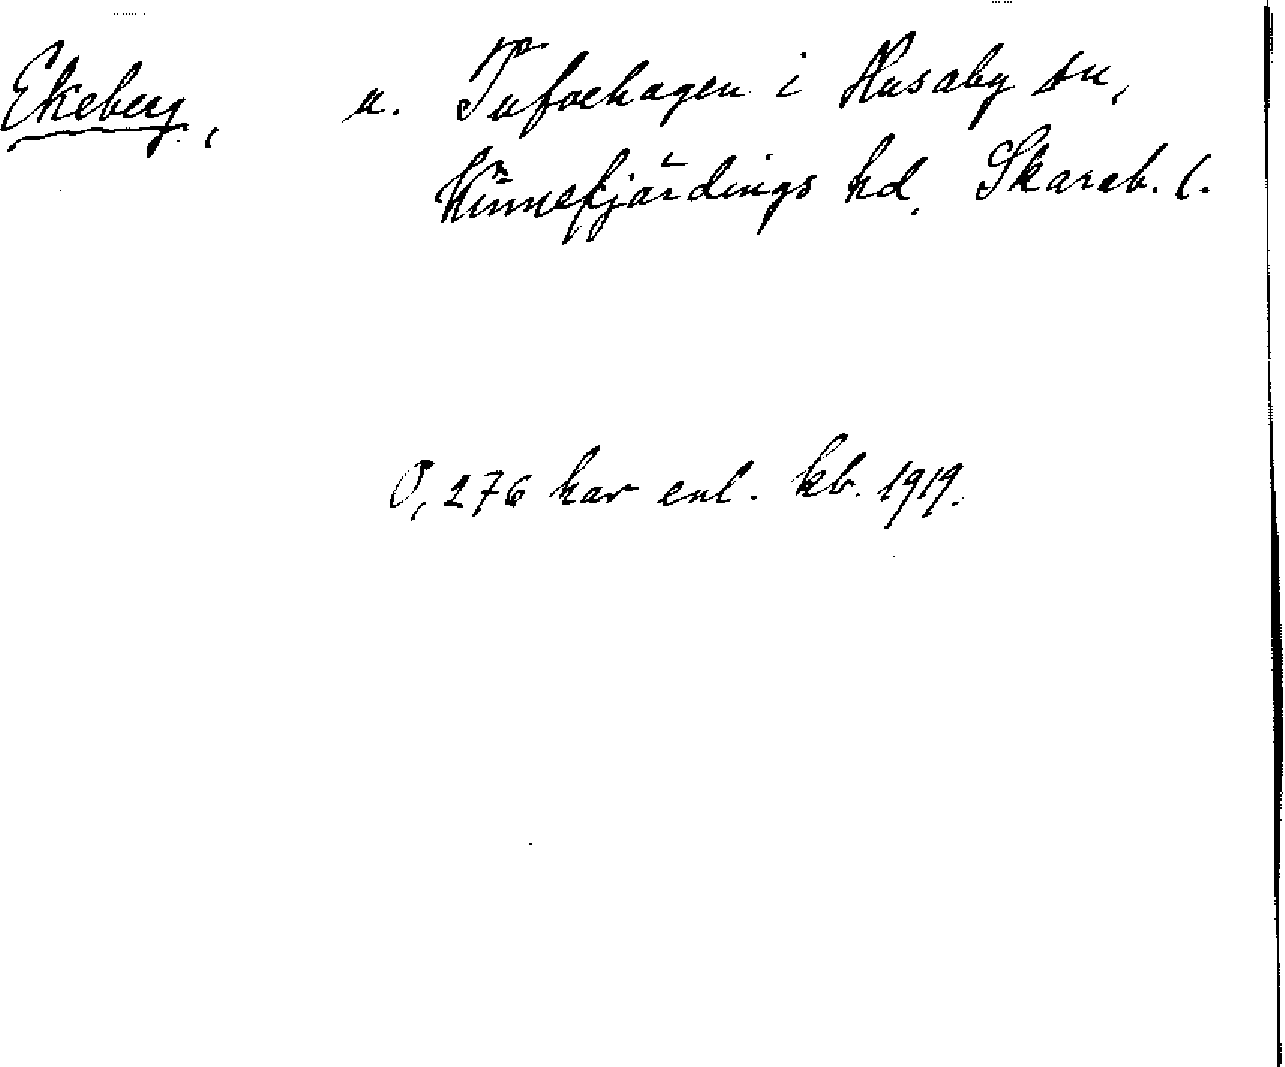 Ekeberg, u. Tufvehagen i Husaby sn,
Kinnefjärdings hd. Skarab. l.
0,276 har enl. kb. 1919.